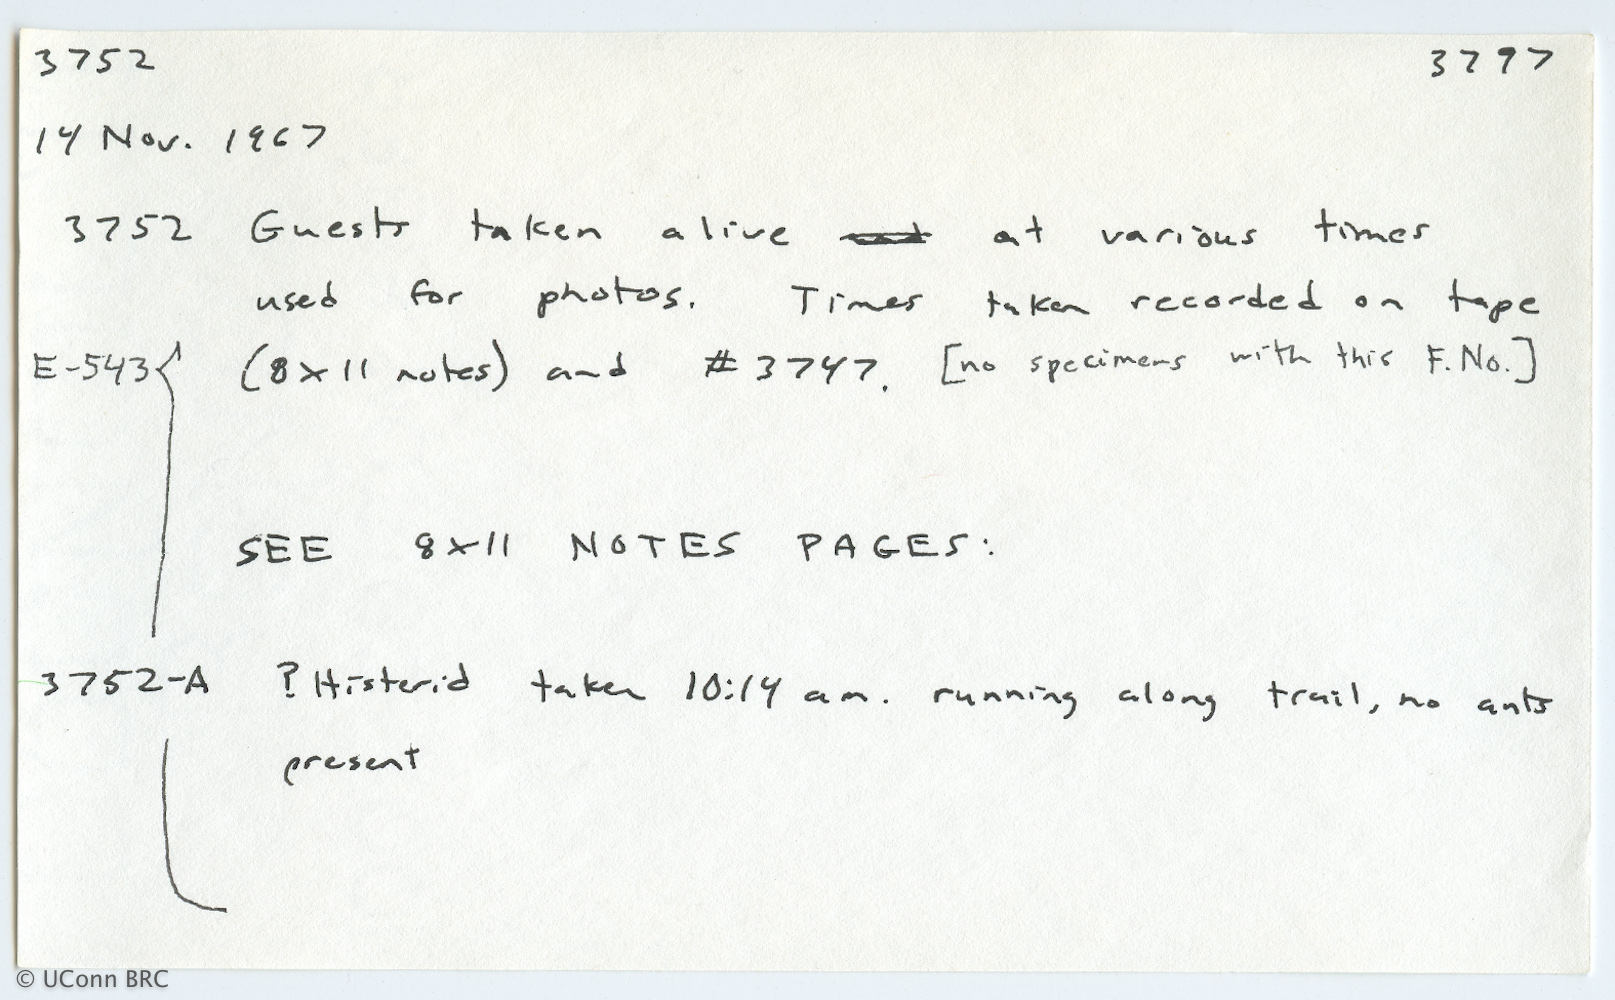 3752 3797
14 Nov. 1967
3752 Guests taken alive at various times
used for photos. Times taken recorded on tape
E-543 (8x11 notes) and # 3747. [no specimens with this F.No.]
SEE 8x11 NOTES PAGES:
3752-A ? Histerid taken 10:14 am. running along trail, no ants
present
© UConn BRC